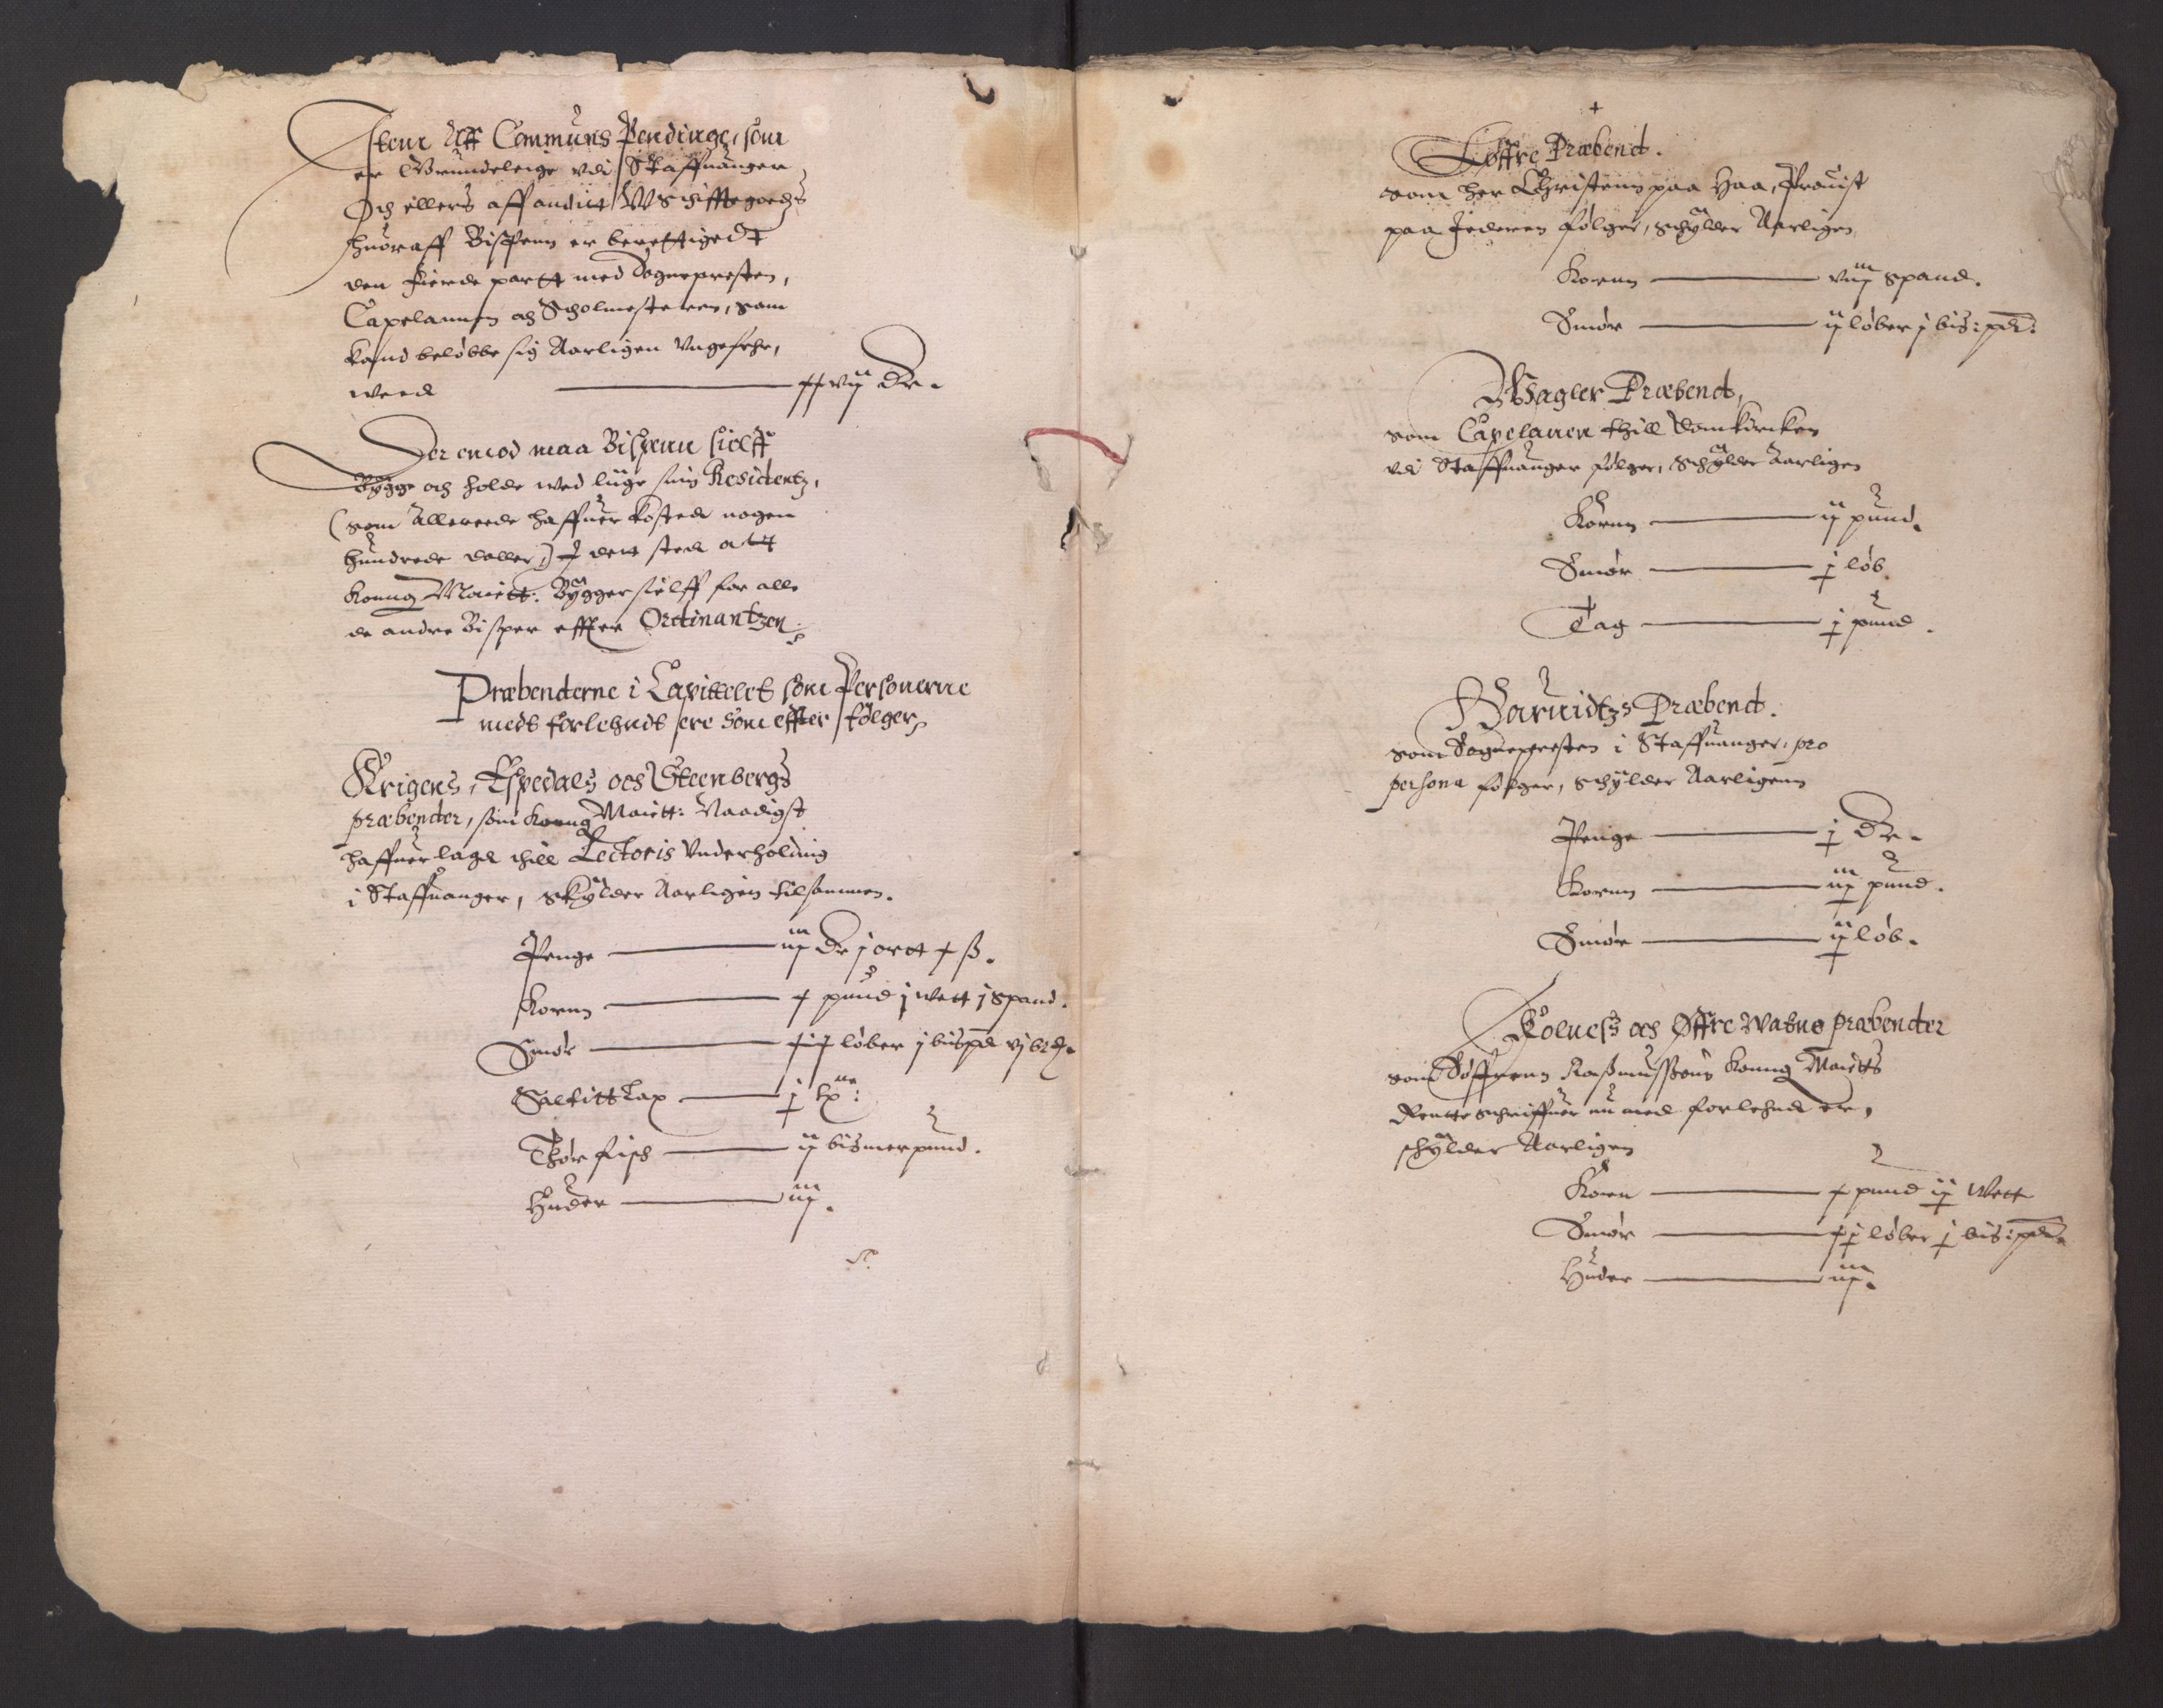 Item Aff Communs Pendinge, som
er Grundeleige vdi Staffuanger
Och ellers aff anditt Wschifftegodtz
huoraff Bispenn er berettigedt
den fierde partt med Sognepresten,
Capelannen och Scholmesteren, som
kand beløbbe sig Aarligen Vngefehr,
weed ——— xxvij Dr.
Der emod maa Bispenn sielff
Bygge och holde wed liige sinn Residentz,
(som Allereede haffuer kosted nogen
hundrede daller) I den sted att
Konng Maiett: Bygger sielff for alle
de andre Bisper effter Ordinantzen.
Præbenderne i Capittelet som Personerne
meds forlehnds ere som effter følger
Krigens, Espedals och Steenbergs
præbender, som Konng Maiett: Naadigst
haffuer lagd thill Lectoris Vnderholding
i Staffuanger, skylder Aarligen tilsammen.
Penge ——— iij Dr j ortt x ß.
Kornn ——— x pund j wett j spand.
Smør ——— xx løber j bispd vj brd.
Saltitt Lax ——— j tne:
Thør fisch ——— ij bismerpund.
Huder ——— iij.
+
Løffre Præbend.
som her Christenn paa Haa, Prouist
paa Jederen følger, schylder Aarligen
Kornn ——— viij spand.
Smør ——— ij løber j bis: pd:
Wagler Præbend,
som Capelanen thill Domkircken
vdi Staffuanger følger, Schylder Aarligen
Kornn ——— ij pund.
Smør ——— j løb
Tag ——— j pund.
Haruidtzs Præbend.
som Sognepresten i Staffuanger, pro
persona følger, Schylder Aarligenn
Penge ——— j Dr.
Kornn ——— iij pund.
Smør ——— ij løb.
Kolness och Øffre Watne præbender
som Søffrenn Rasmussønn Konng Maietts
Renteschriffuer nu med forlehnd er,
schylder Aarligen
Korn ——— x pund ij Wett
Smør ——— xj løber j bis: pd.
Huder ——— iij.